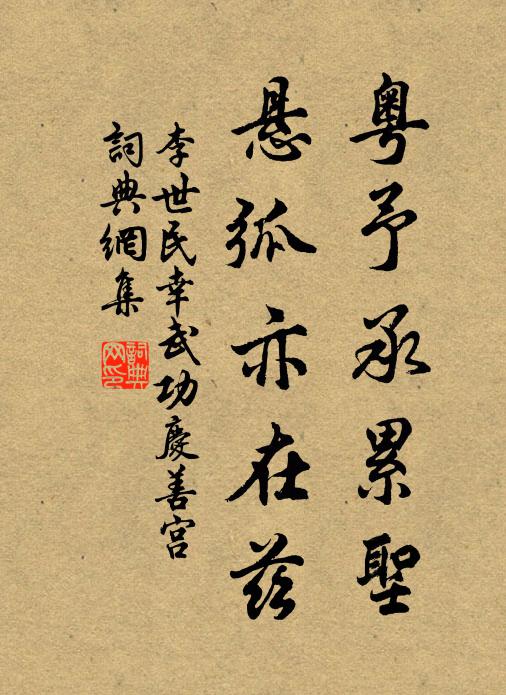 粤予承累聖
悬弧亦在茲
李世民幸武功慶善宫
詞典網集
詞典网印